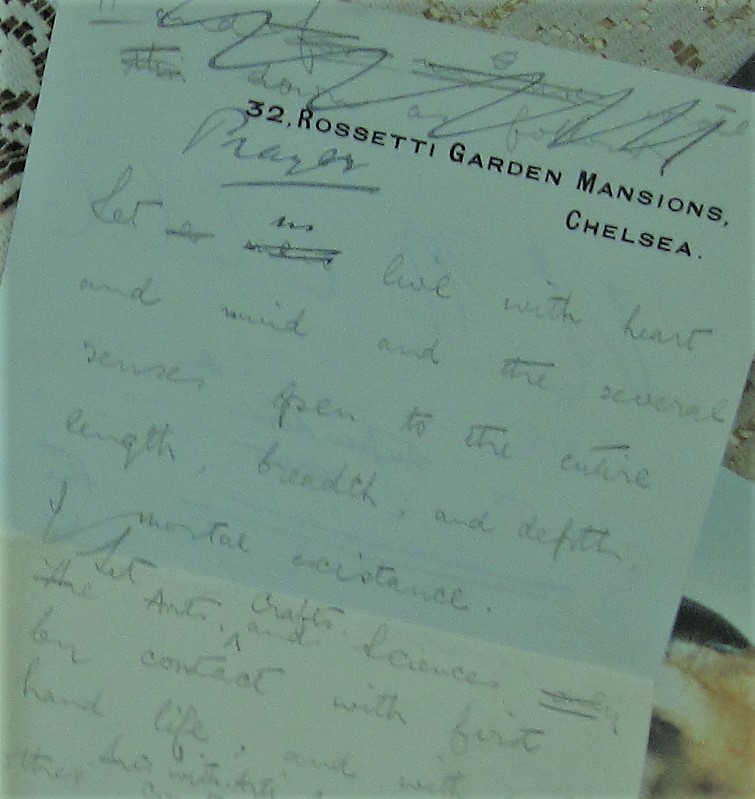 this down as follows
32, ROSSETTI GARDEN MANSIONS,
CHELSEA.
Prayer
us
Let live with heart
and mind and the several
senses open to the entire
length, breadth, and depth,
of mortal existance.
Let
The Arts, Crafts and Sciences
by contact with first
hand life, and with
other